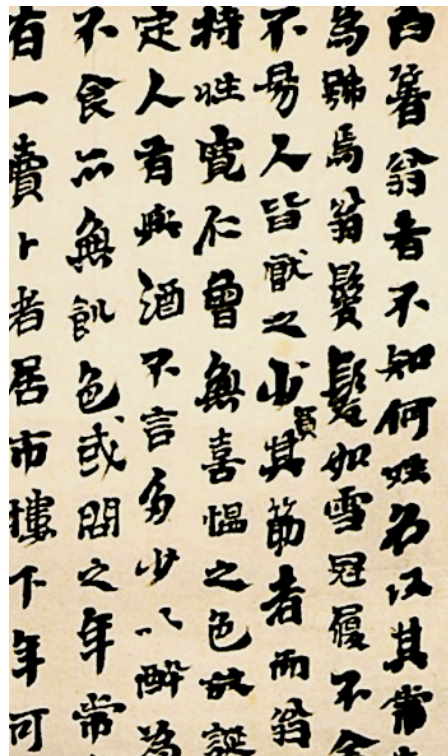 白箸翁者不知何姓名以其常
為號焉翁鬢髮如雪冠履不全
不易人皆猒之少買其筯者而翁
特性寬仁曾無喜慍之色放誕
定人有與酒不言多少以醉為
不食而無飢色或問之年常
有一賣卜者居市樓下年可